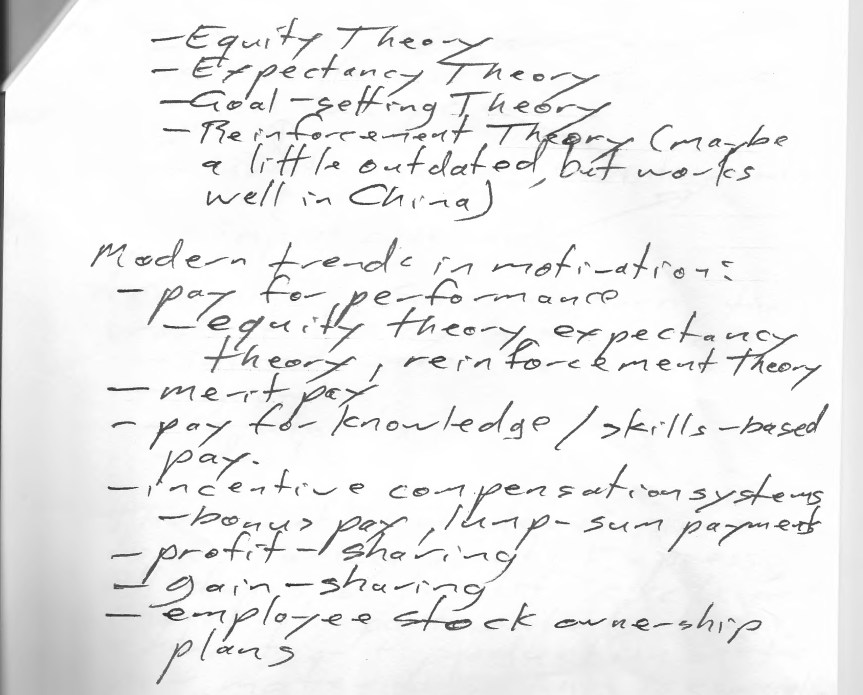 - Equity Theory
- Expectancy Theory
- Goal-setting Theory
- Reinforcement Theory (maybe
a little outdated, but works
well in China)
Modern trends in motivation:
- pay for performance
- equity theory, expectancy
theory, reinforcement theory
- merit pay
- pay for knowledge / skills-based
pay.
- incentive compensation systems
- bonus pay, lump-sum payments
- profit-sharing
- gain-sharing
- employee stock ownership
plans